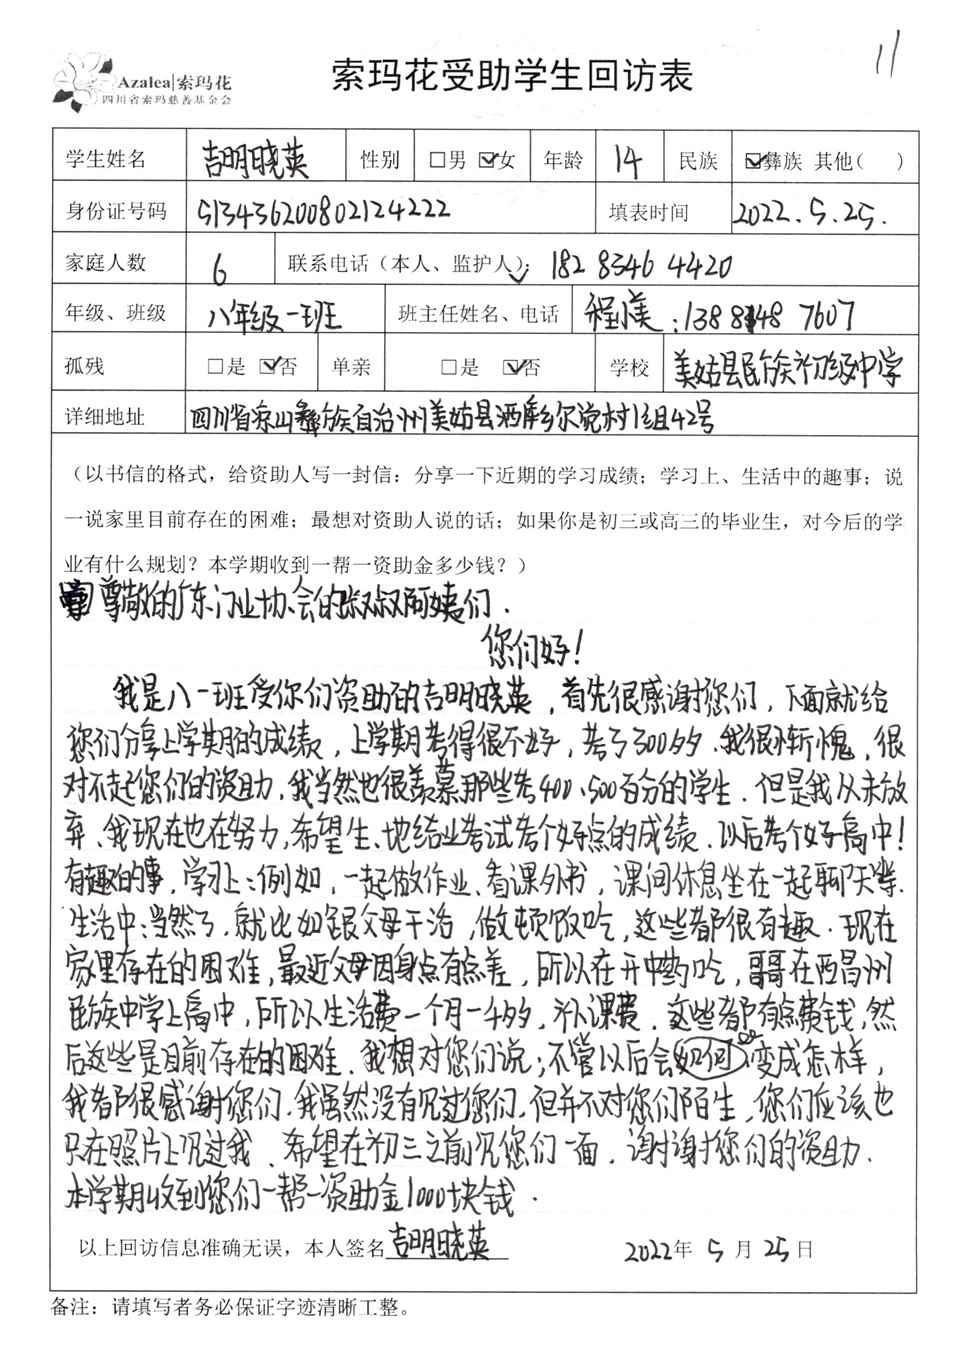 11
Azalea|索玛花
四川省索玛慈善基金会
索玛花受助学生回访表
学生姓名 吉明晓英 性别 □男 ☑女 年龄 14 民族 ☑彝族 其他( )
身份证号码 513436200802124222 填表时间 2022.5.25.
家庭人数 6 联系电话(本人、监护人✓): 182 8346 4420
年级、班级 八年级一班 班主任姓名、电话 程小美:138 8148 7607
孤残 □是 ☑否 单亲 □是 ☑否 学校 美姑县民族初级中学
详细地址 四川省凉山彝族自治州美姑县洒库乡尔说村1组42号
(以书信的格式,给资助人写一封信:分享一下近期的学习成绩;学习上、生活中的趣事;说
一说家里目前存在的困难;最想对资助人说的话;如果你是初三或高三的毕业生,对今后的学
业有什么规划?本学期收到一帮一资助金多少钱?)
尊敬的广东门业协会的叔叔阿姨们.
您们好!
我是八一班受你们资助的吉明晓英,首先很感谢您们,下面就给
您们分享上学期的成绩,上学期考得很不好,考了300多.我很惭愧,很
对不起您们的资助,我当然也很羡慕那些考400、500百分的学生.但是我从未放
弃、我现在也在努力,希望生、地结业考试考个好点的成绩.以后考个好高中!
有趣的事,学习上:例如,一起做作业、看课外书,课间休息坐在一起聊天等.
生活中:当然了.就比如跟父母干活,做顿饭吃,这些都很有趣.现在
家里存在的困难,最近父母因身点有点差,所以在开中药吃,哥哥在西昌州
民族中学上高中,所以生活费一个月一千多,补课费.这些都有点费钱,然
后这些是目前存在的困难.我想对您们说;不管以后会如何变成怎样,
我都很感谢您们.我虽然没有见过您们,但并不对您们陌生,您们应该也
只在照片上见过我.希望在初三之前见您们一面.谢谢您们的资助.
本学期收到您们一帮一资助金1000块钱.
以上回访信息准确无误,本人签名 吉明晓英 2022年 5 月 25 日
备注:请填写者务必保证字迹清晰工整。